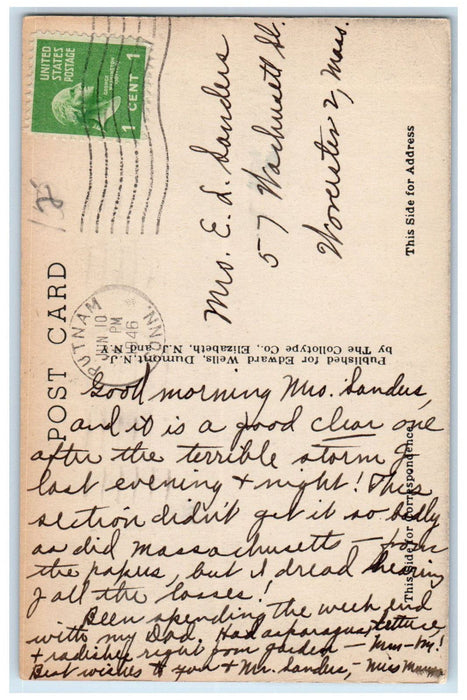 UNITED
STATES
POSTAGE
GEORGE
WASHINGTON
1 CENT 1
POST CARD
PUTNAM
CONN.
JUN 10
PM
1946
Mrs. E. L. Sanders
57 Wachusett St.
Worcester 2, Mass.
This Side for Address
Published for Edward Wells, Dumont, N.J.
by The Collotype Co., Elizabeth, N.J. and N.Y.
This Side for Correspondence
Good morning Mrs. Sanders,
and it is a good clear one
after the terrible storm of
last evening + night! This
section didn't get it so badly
as did Massachusetts — from
the papers, but I dread hearing
of all the losses!
Been spending the week end
with my Dad. Had asparagus, lettuce
+ radishes right from garden — Mm-m!
Best wishes to you + Mr. Sanders, – Miss